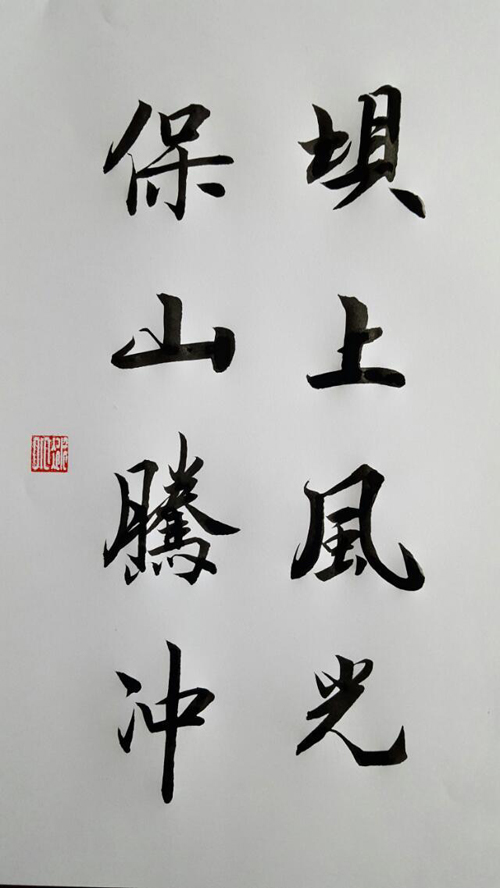 坝上風光
保山騰冲